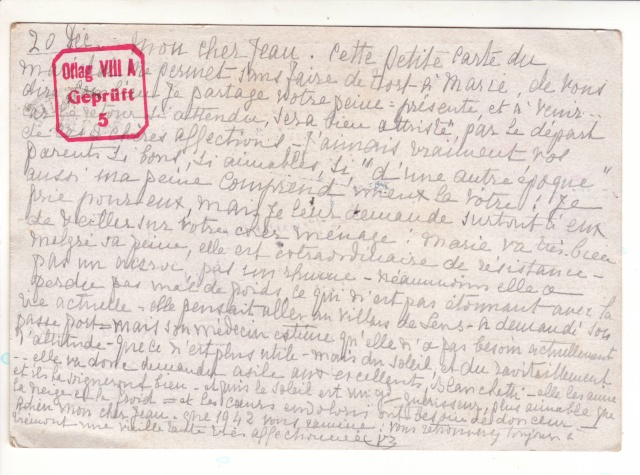 20 Déc... Mon cher Jean. Cette petite carte du
me permet sans faire de tort à Marie, de vous
dire je partage votre peine = présente, et à venir...
car le retour si attendu, sera bien attristé par le départ
de chères affections - J'aimais vraiment vos
parents si bons, si aimables, si "d'une autre époque"
aussi ma peine comprend mieux la vôtre ! Je
prie pour eux, mais je leur demande surtout à eux
de veiller sur votre cher ménage ! Marie va très bien
malgré sa peine, elle est extraordinaire de résistance -
pas un accroc, pas un rhume - néanmoins elle a
perdu pas mal de poids ce qui n'est pas étonnant avec la
vie actuelle - elle pensait aller au Villars de Lens - a demandé son
passeport = mais son médecin estime qu'elle n'a pas besoin actuellement
d'altitude - que ce n'est plus utile - mais du soleil, et du ravitaillement
- elle va donc demander asile aux excellents Blanchetti - elle les aime
et ils la soigneront bien - et puis le soleil est un guérisseur, plus aimable que
la neige et le froid = et les cœurs endoloris ont besoin de douceur -
Adieu mon cher Jean. Que 1942 vous ramène ! Vous retrouverez toujours à
une vieille tante très affectionnée
Oflag VIII A
Geprüft
5